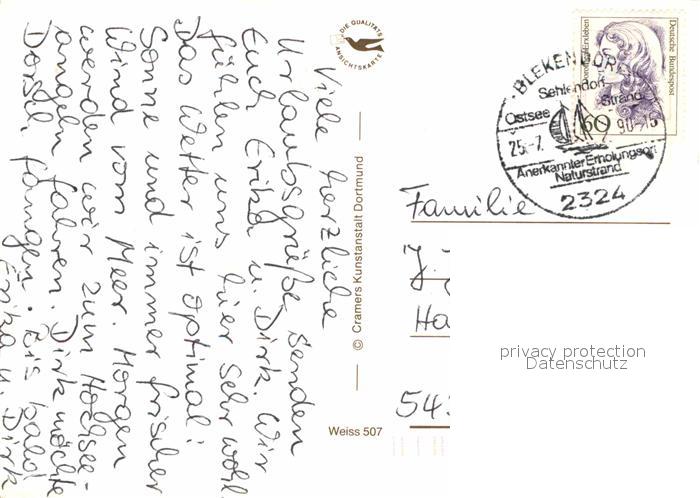 Viele herzliche
Urlaubsgrüße senden
Euch Erika u. Dirk. Wir
fühlen uns hier sehr wohl.
Das Wetter ist optimal:
Sonne und immer frischer
Wind vom Meer. Morgen
werden wir zum Hochsee-
angeln fahren. Dirk möchte
Dorsch fangen. Bis bald
Erika u. Dirk
DIE QUALITÄTS
ANSICHTSKARTE
© Cramers Kunstanstalt Dortmund
Weiss 507
Deutsche Bundespost
Dorothea Erxleben
60
BLEKENDORF
Sehlendorf
Ostsee
Strand
25.-7. 90-15
Anerkannter Erholungsort
Naturstrand
2324
Familie
J.
Ha
54
privacy protection
Datenschutz